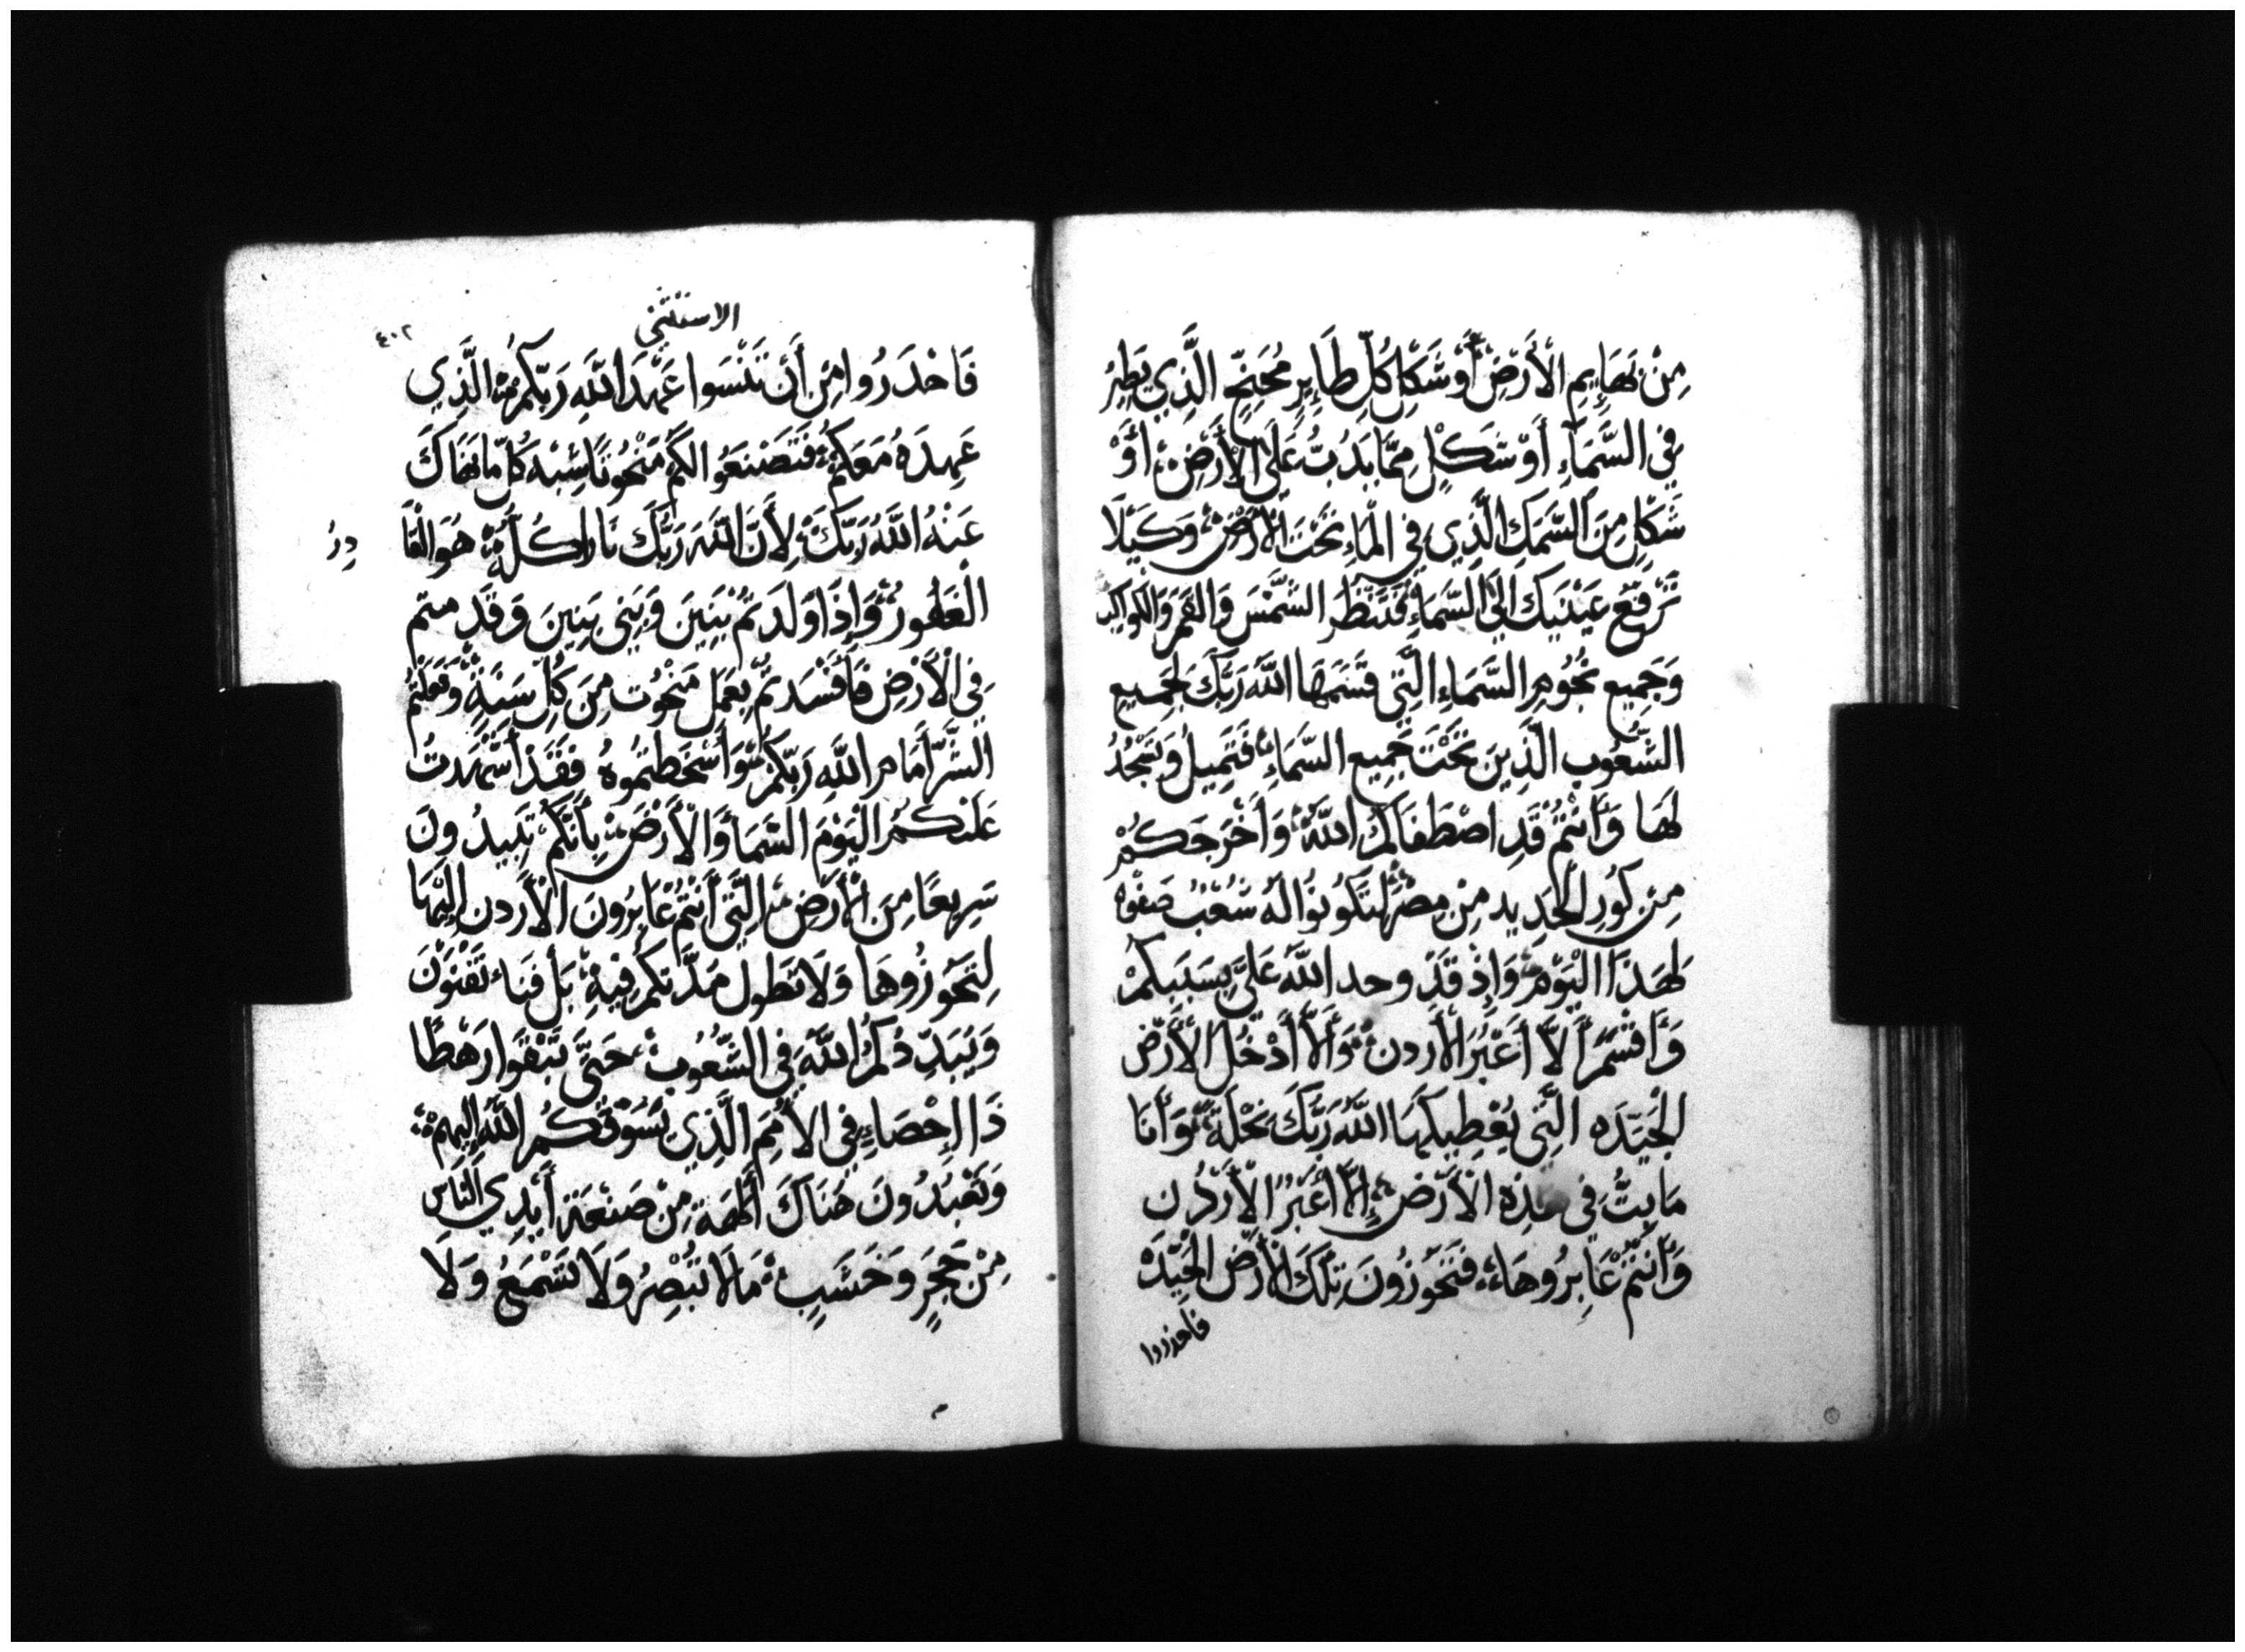 مِنْ بَهَايِمِ الْأَرْضِ أَوْ شَكْلِ كُلِّ طَايِرٍ مُجَنِحٍ الَّذِي يَطِيرُ
فِي السَّمَاءِ أَوْ شَكْلٍ مِمَّا يَدُبُّ عَلَى الْأَرْضِ أَوْ
شَكْلٍ مِنَ السَّمَكِ الَّذِي فِي الْمَاءِ تَحْتَ الْأَرْضِ وَكَيْلَا
تَرْفَعَ عَيْنَيْكَ إِلَى السَّمَاءِ فَتَنْظُرَ الشَّمْسَ وَالقَمَرَ وَالْكَوَاكِبَ
وَجَمِيعَ نُجُومِ السَّمَاءِ الَّتِي قَسَمَهَا اللَّهُ رَبُّكَ لِجَمِيعِ
الشُّعُوبِ الَّذِينَ تَحْتَ جَمِيعِ السَّمَاءِ فَتَمِيلُ وَتَسْجُدُ
لَهَا وَأَنْتُمْ قَدِ اصْطَفَاكُمُ اللَّهُ وَأَخْرَجَكُمْ
مِنْ كُورِ الْحَدِيدِ مِنْ مِصْرَ لِتَكُونُوا لَهُ شَعْبَ صَفْوَه
لِهَذَا الْيَوْمِ وَإِذْ قَدْ وجد اللَّهُ عَلَيَّ بِسَبَبِكُمْ
وَأَقْسَمَ أَلَّا أَعْبُرَ الْأُردن وَأَلَّا أَدْخُلَ الْأَرْضَ
الْجَيِّدَه الَّتِي يُعْطِيكَهَا اللَّهُ رَبُّكَ نِحْلَةً وَأَنَا
مَايِتٌ فِي هَذِهِ الْأَرْضِ لَا أَعْبُرُ الْأَرْدُن
وَأَنْتُمْ عَابِرُوهَا فَتَحُوزُونَ تِلْكَ الْأَرْضَ الْجَيِّدَه
فاحذروا
الاستثنى
٤٠٢
فَاحْذَرُوا مِنْ أَنْ تَنْسَوا عَهْدَ اللَّهِ رَبِّكُمُ الَّذِي
عَهِدَهُ مَعَكُمْ فَتَصْنَعُوا لَكُمْ مَنْحُوتًا شِبْهَ كُلِّ مَا نَهَاكَ
عَنْهُ اللَّهُ رَبُّكَ لِأَنَّ اللَّهَ رَبَّكَ نَارٌ اكُلَّةٌ هُوَ الْقَا
دِرُ
الغَيُورُ وَإِذَا وَلَدْتُمْ بَنِينَ وَبَنِي بَنِينَ وَقَد متم
فِي الْأَرْضِ فَأَفْسَدْتُمْ بِعَمَلِ مَنْحُوتٍ مِنَ كُلِّ شِبْهٍ وَفَعَلْتُمُ
الشَّرَّ أَمَامَ اللَّهِ رَبِّكُمْ وَأَسْخَطْتُمُوهُ فَقَدْ أَشْهَدتُ
عَلَيْكُمُ الْيَوْمَ السَّمَا وَالْأَرْضَ بِأَنَّكُمْ تَبِيدُونَ
سَرِيعًا مِنَ الْأَرْضِ الَّتِي أَنْتُمْ عَابِرُونَ الْأُردن إِلَيْهَا
لِتَحُوزُوهَا وَلَا تَطول مَدَّتكُمْ فِيهَ بَل فَنَاء تَفْنَوْنَ
وَيُبَدِّدُكُمُ اللَّهُ فِي الشُّعُوبِ حَتَّى تَبْقَوا رَهْطًا
ذَا إِحْصَاءٍ فِي الْأُمَمِ الَّذِي يَسُوقُكُمُ اللَّهُ إِلَيْهِمْ
وَتَعْبُدُونَ هُنَاكَ أَلِهَةً مِنْ صَنْعَةِ أَيْدِي النَّاسِ
مِنْ حَجَرٍ وَخَشَبٍ مَا لَا تُبْصِرُ وَلَا تَسْمَعُ وَلَا